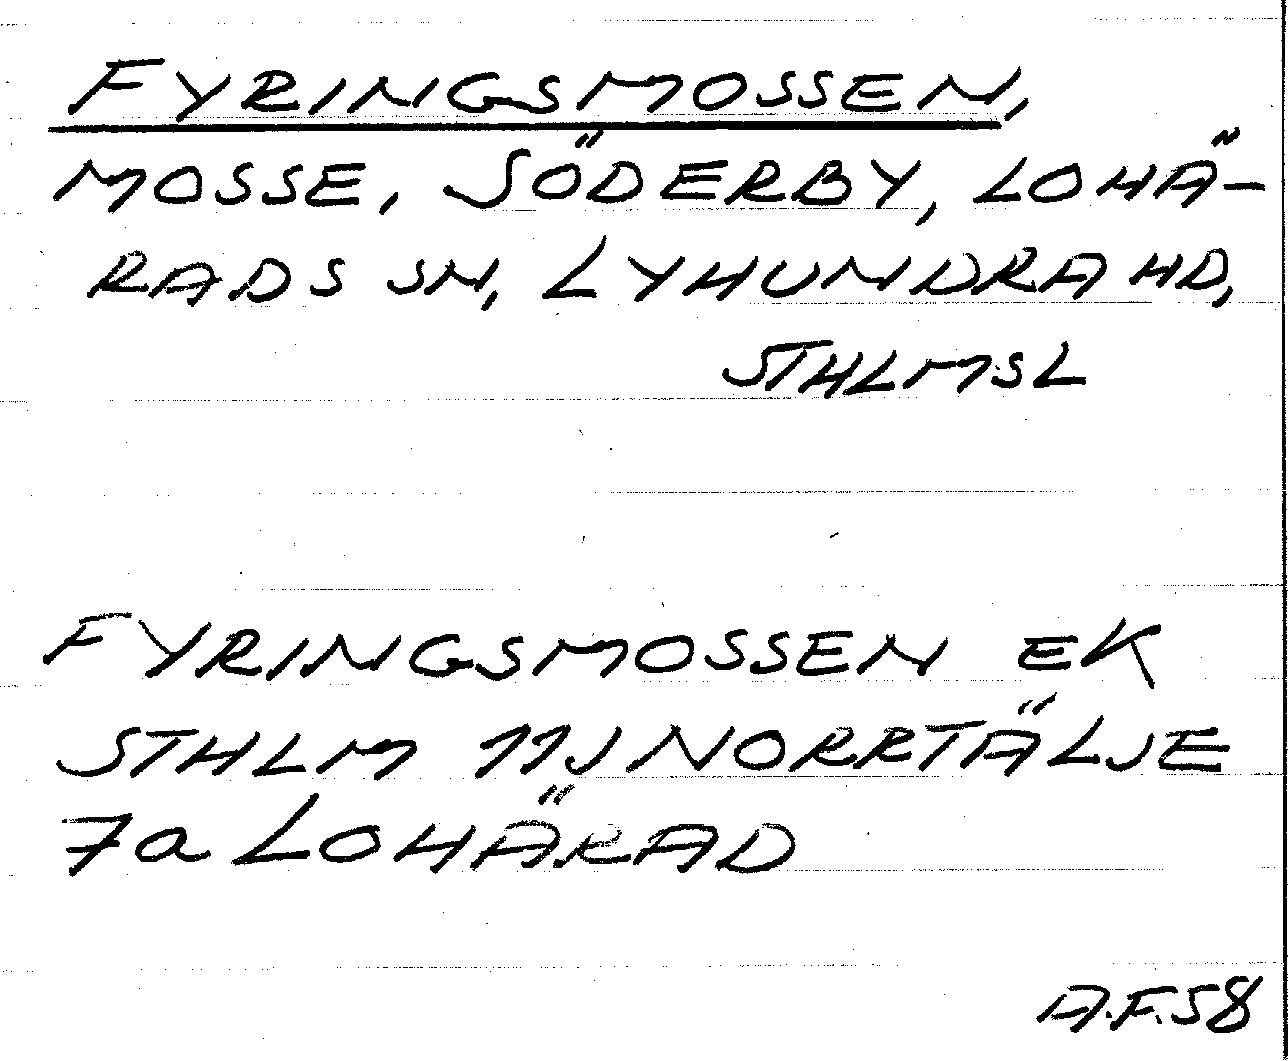 FYRINGSMOSSEN,
MOSSE, SÖDERBY, LOHÄ-
RADS SN, LYHUNDRA HD,
STHLMSL
FYRINGSMOSSEN EK
STHLM 11J NORRTÄLJE
7a LOHÄRAD
A.F.58